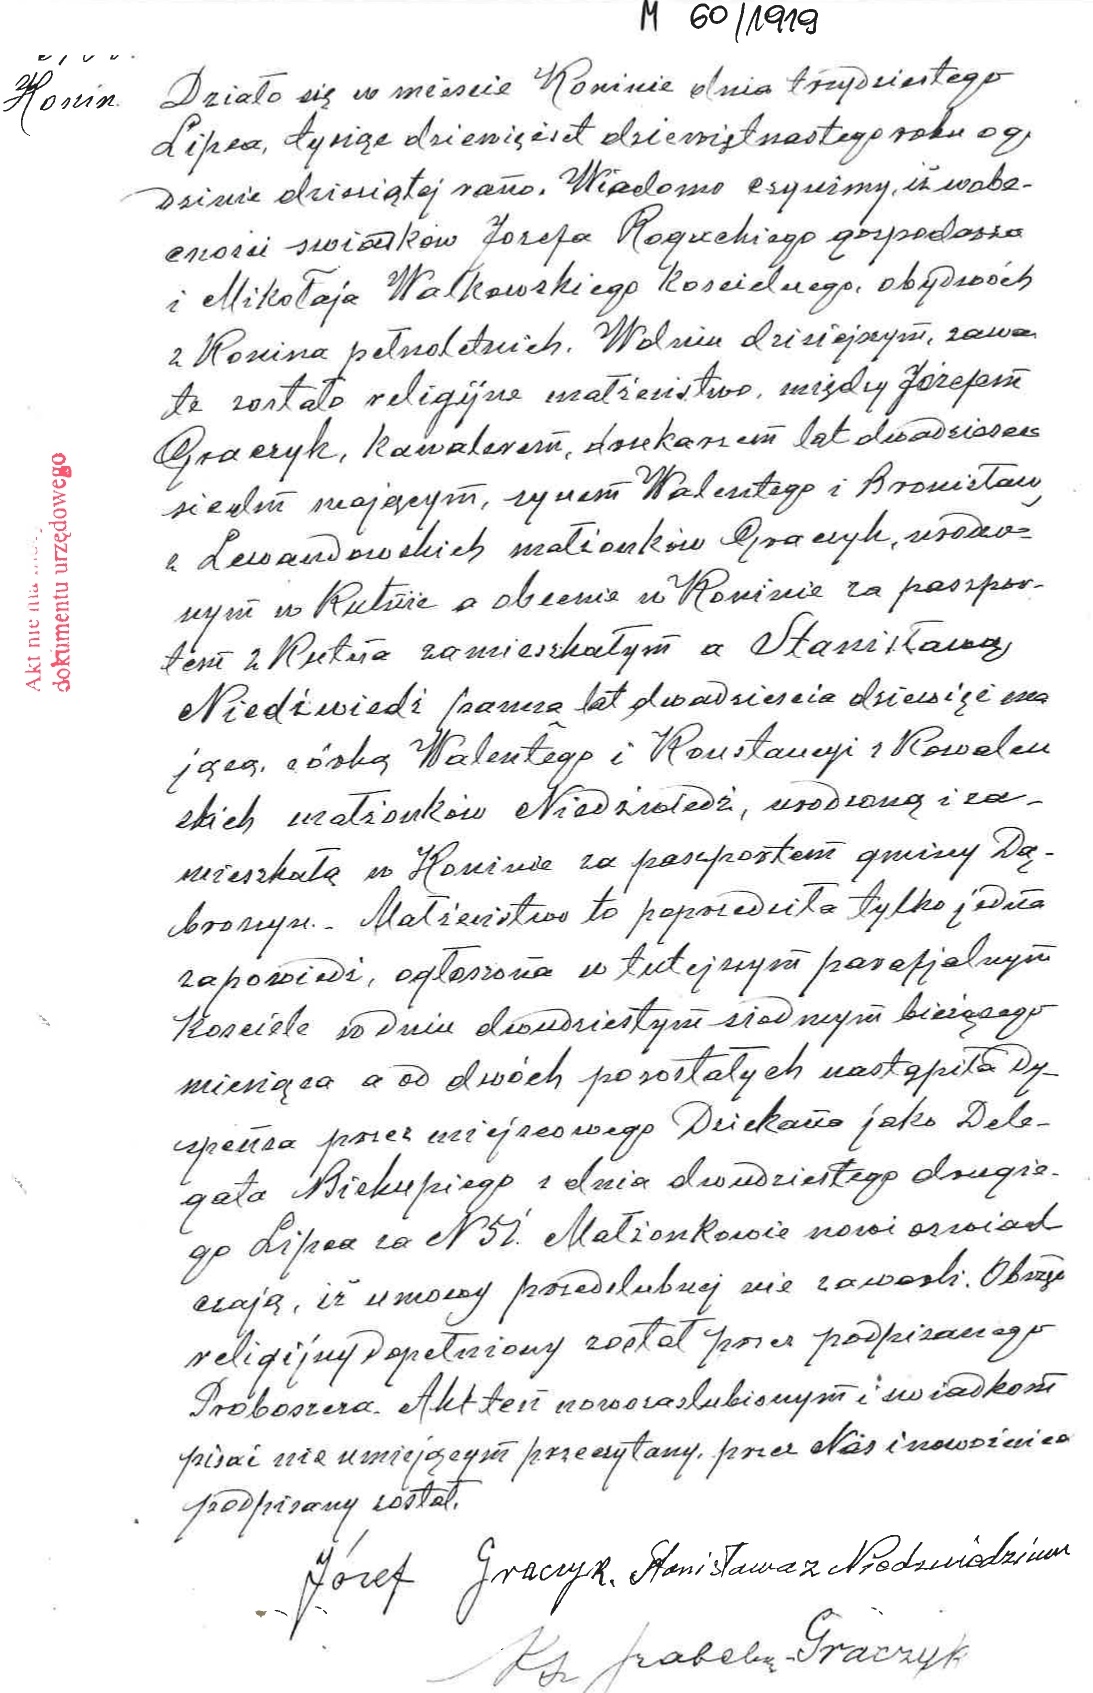 M 60/1919
Konin.
Działo się w mieście Koninie dnia trzydziestego
Lipca, tysiąc dziewięćset dziewiętnastego roku o go
dzinie dziesiątej rano. Wiadomo czynimy, iż w obe-
cności swiadków Jozefa Roguckiego gospodarza
i Mikołaja Walkowskiego Koscielnego, obydwóch
z Konina pełnoletnich. W dniu dzisiejszym, zawar
te zostało religijne małżeństwo, między Józefem
Graczyk, Kawalerem, drukarzem lat dwadziescia
siedm mającym, synem Walentego i Bronisławy
z Lewandowskich małżonków Graczyk, urodzo=
nym w Kutnie a obecnie w Koninie za paszpor-
tem z Kutna zamieszkałym a Stanisławą
Niedźwiedź panną lat dwadziescia dziewięć ma
jącą, córką Walentego i Konstancyi z Kowalew
skich małżonków Niedźwiedź, urodzoną i za-
mieszkałą w Koninie za paszportem gminy Dą-
broszyn.- Małżeństwo to poprzedziła tylko jedna
zapowiedź, ogłoszona w tutejszym parafjalnym
Kosciele w dniu dwudziestym siodmym bieżącego
miesiąca a od dwóch pozostałych nastąpiła Dy-
spensa przez miejscowego Dziekana jako Dele-
gata Biskupiego z dnia dwudziestego drugie-
go Lipca za N 51. Małżonkowie nowi oswiad
czają, iż umowy przedslubnej nie zawarli. Obrzęd
religijny dopełniony został przez podpisanego
Proboszcza. Akt ten nowozaslubionym i swiadkom
pisać nie umiejącym przeczytany, przez Nas i nowożeńca
podpisany został.
Józef Graczyk. Stanisława z Niedzwiedziów
Graczyk
Ks
Akt nie ma
dokumentu urzędowego